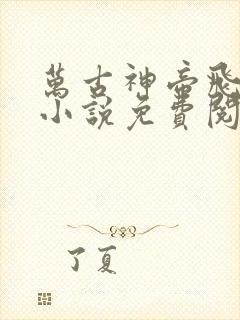 萬古神帝飛
小說免費閱
了夏